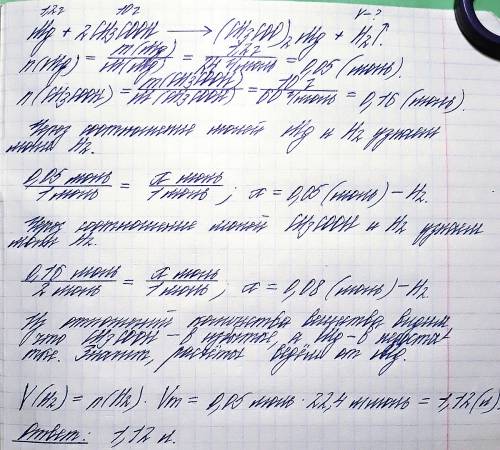 1,2г 10г V-?
Mg + 2CH3COOH ⟶ (CH3COO)2Mg + H2↑.
n(Mg) = m(Mg)/m(Mg) = 1,2г/24 г/моль = 0,05 (моль).
n(CH3COOH) = m(CH3COOH)/m(CH3COOH) = 10 г/60 г/моль = 0,16 (моль).
Через соотношение молей Mg и H2 узнаем
моли H2.
0,05 моль/1 моль = x моль/1 моль ; x = 0,05 (моль) - H2.
Через соотношение молей CH3COOH и H2 узнаем
моли H2.
0,16 моль/2 моль = x моль/1 моль ; x = 0,08 (моль) - H2
Из отношений количества вещества видим
что CH3COOH - в избытке, а Mg - в недостат
ке. Значит, расчёты ведём от Mg.
V(H2) = n(H2) · Vm = 0,05 моль · 22,4 л/моль = 1,12 (л).
Ответ: 1,12 л.